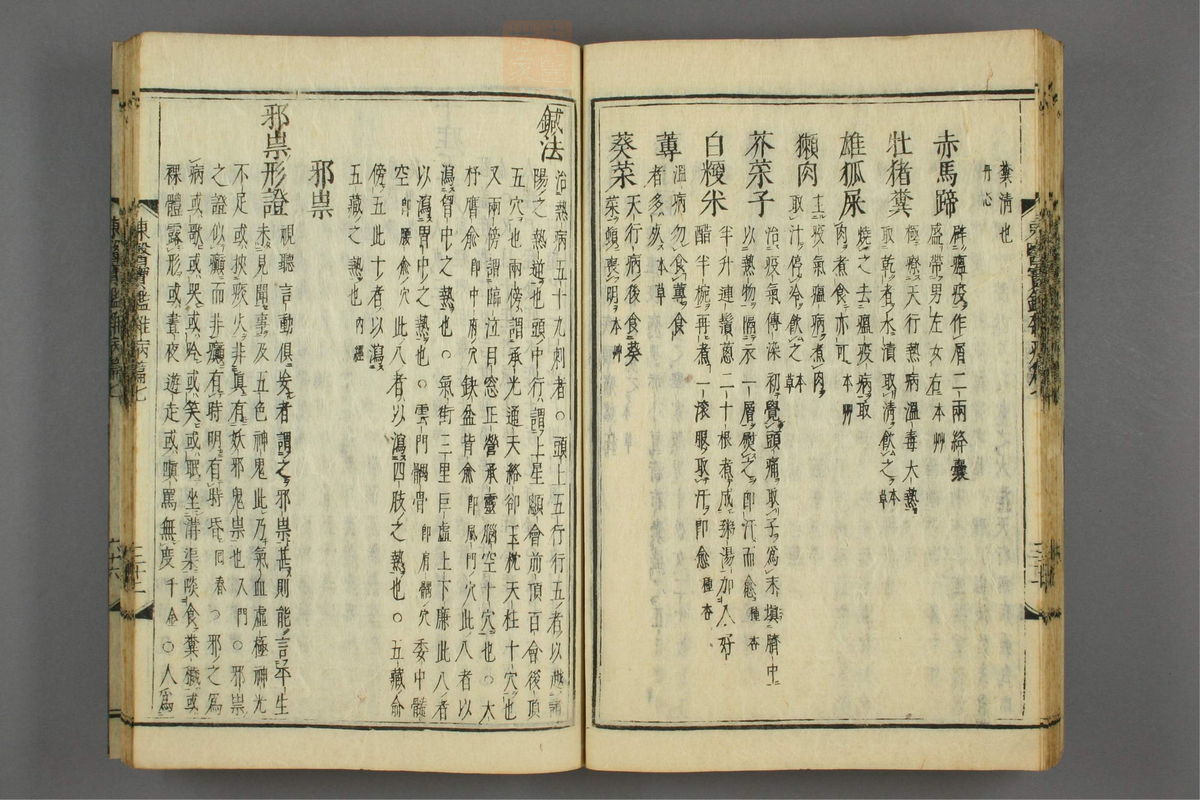 糞清也
丹心
赤馬蹄
辟瘟疫作屑二兩絳囊
盛帶男左女右本艸
壯猪糞
極療天行熱病溫毒大熱
取乾者水漬取清飲之本草
雄狐屎
燒之去瘟疫病取
肉煮食亦可本艸
獺肉
主疫氣瘟病煮肉
取汁停冷飲之本草
芥菜子
治疫氣傳染初覺頭痛取子爲末塡臍中
以熱物隔一層熨之卽汗而愈種杏
白粳米
半升連鬚蔥二十根煮成粥湯加入好
醋半椀再煮一滾服取汗卽愈種杏
蓴
溫病勿食蓴食
者多死本草
葵菜
天行病後食葵
菜頓喪明本艸
鍼法
治熱病五十九刺者○頭上五行行五者以越諸
陽之熱逆也頭中行謂上星顖會前頂百會後頂
五穴也兩傍謂承光通天絡却玉枕天柱十穴也
又兩傍謂臨泣目窓正營承靈腦空十穴也○大
杼膺兪卽中府穴缺盆背兪卽風門穴此八者以
瀉胷中之熱也○氣街三里巨虛上下廉此八者
以瀉胃中之熱也○雲門髃骨卽肩髃穴委中髓
空卽腰兪穴此八者以瀉四肢之熱也○五藏兪
傍五此十者以瀉
五藏之熱也內經
邪祟
邪祟形證
視聽言動俱妄者謂之邪祟甚則能言平生
未見聞事及五色神鬼此乃氣血虛極神光
不足或挾痰火非眞有妖邪鬼祟也入門○邪祟
之證似癲而非癲有時明有時昏回春○邪之爲
病或歌或哭或吟或笑或眠坐溝渠啖食糞穢或
裸體露形或晝夜遊走或嗔罵無度千金○人爲
東醫寶鑑雜病篇七